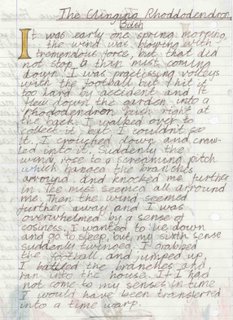 The Clinging Rhoddodendron
Bush
It was early one spring morning
the wind was blowing with
tremendous force but that did
not stop a thin mist coming
down. I was practising volleys
with the football but I hit it
too hard by accident and it
flew down the garden into a
rhododendron bush right at
the end. I walked over to
collect it but I couldn't see
it. I crouched down and craw-
led up front. Suddenly the
wind rose to a screaming pitch
which banged the branches
arround and knocked me further
in. The mist seemed all arround
me. Then the wind seemed
further away and I was
overwhelmed by a sense of
cosiness. I wanted to lie down
and go to sleep but my sixth sense
suddenly twinged, I grabbed
the football and jumped up.
I battled the branches and
ran into the house. If I had
not come to my senses in time
I would have been transferred
into a time warp.